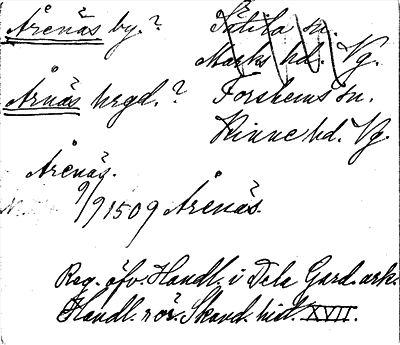 Årenäs by.? Sätila sn.
Marks hd. Vg.
Årnäs hrgd.? Forshems sn.
Kinne hd. Vg.
Årenäs.
9/9 1509 Årenäs.
Reg. öfv. Handl. i Dela Gard. ark.
Handl. rör. Skand. hist. XVII.